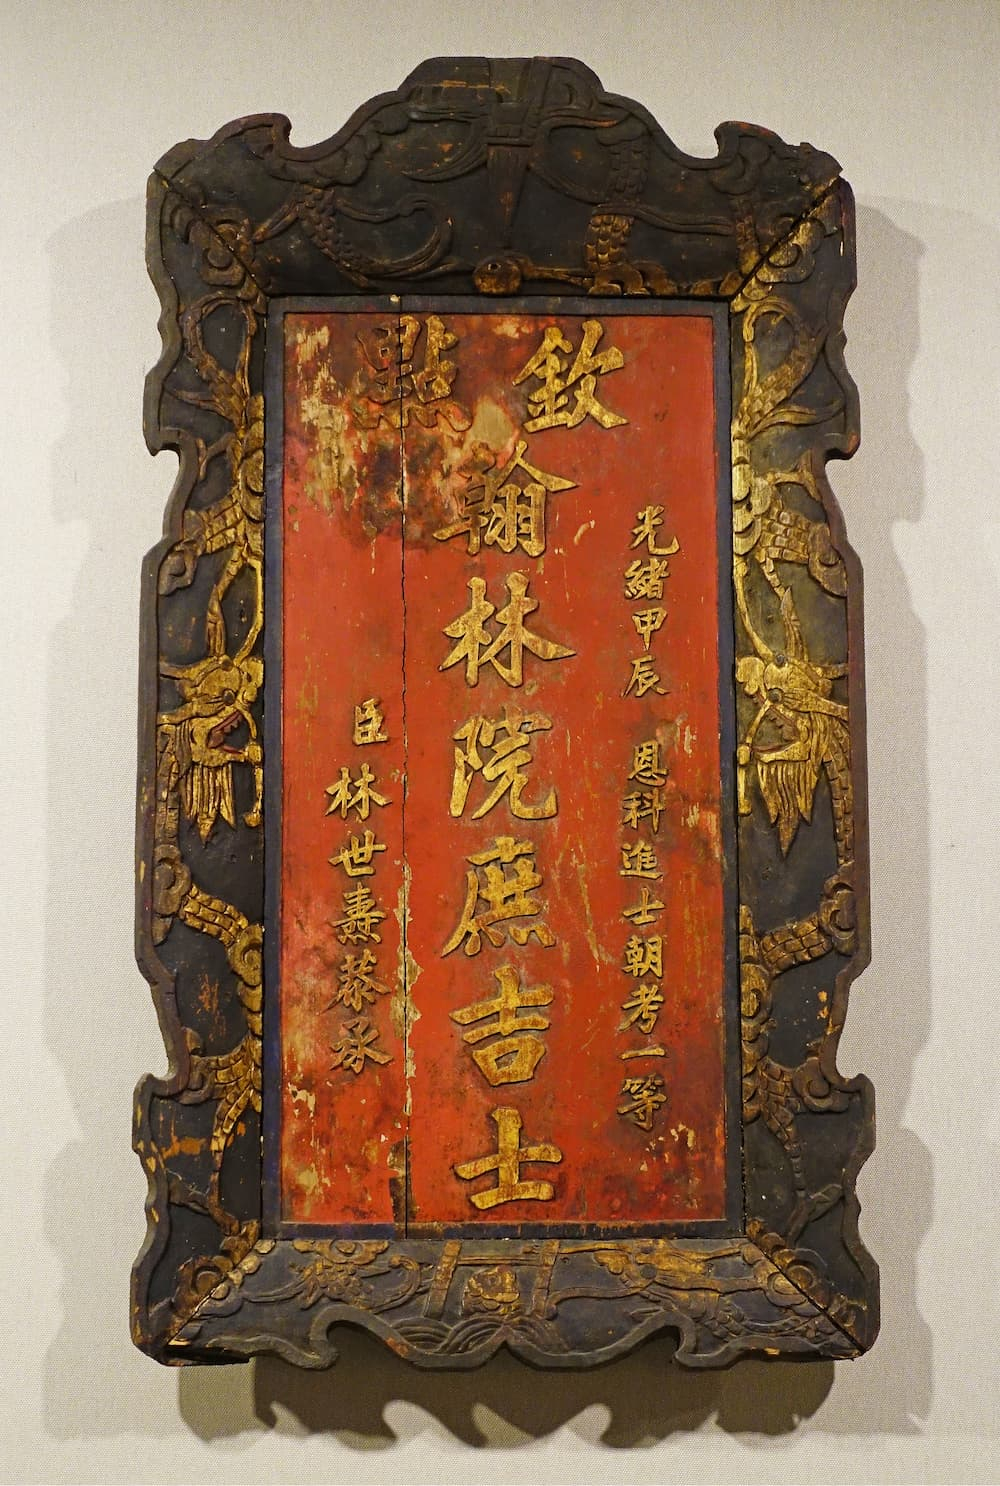 光緒甲辰 恩科進士朝考一等
欽點
翰林院庶吉士
臣 林世燾恭承